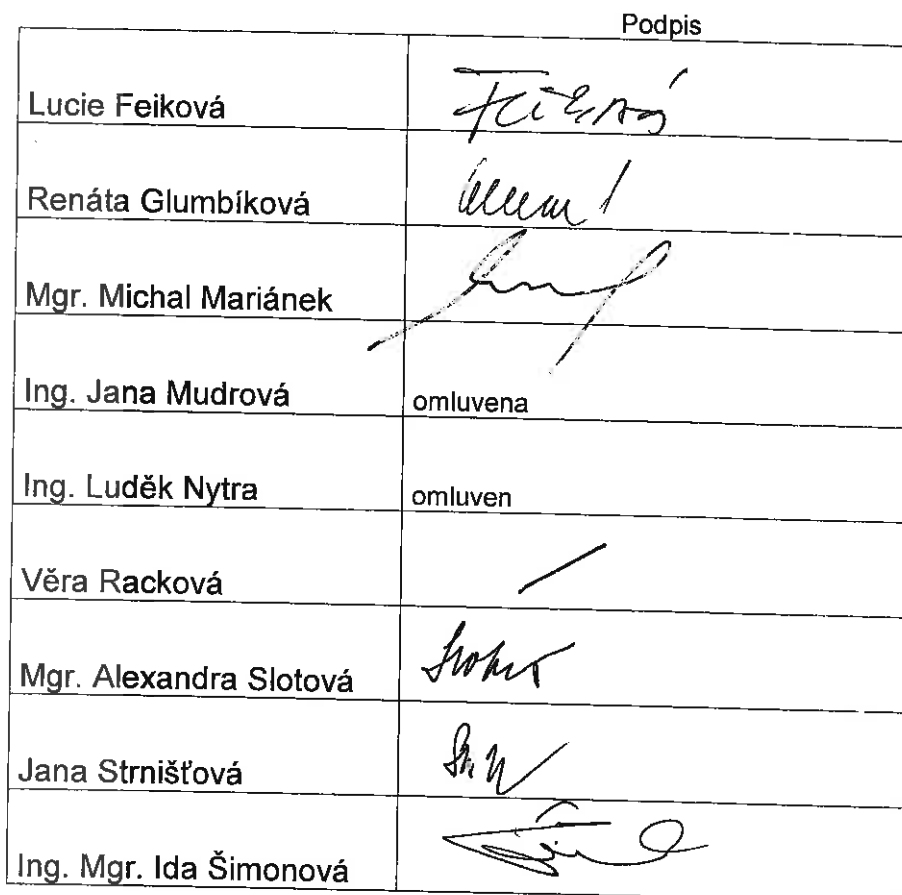 Podpis
Lucie Feiková
Renáta Glumbíková
Mgr. Michal Mariánek
Ing. Jana Mudrová omluvena
Ing. Luděk Nytra omluven
Věra Racková
Mgr. Alexandra Slotová
Jana Strnišťová
Ing. Mgr. Ida Šimonová